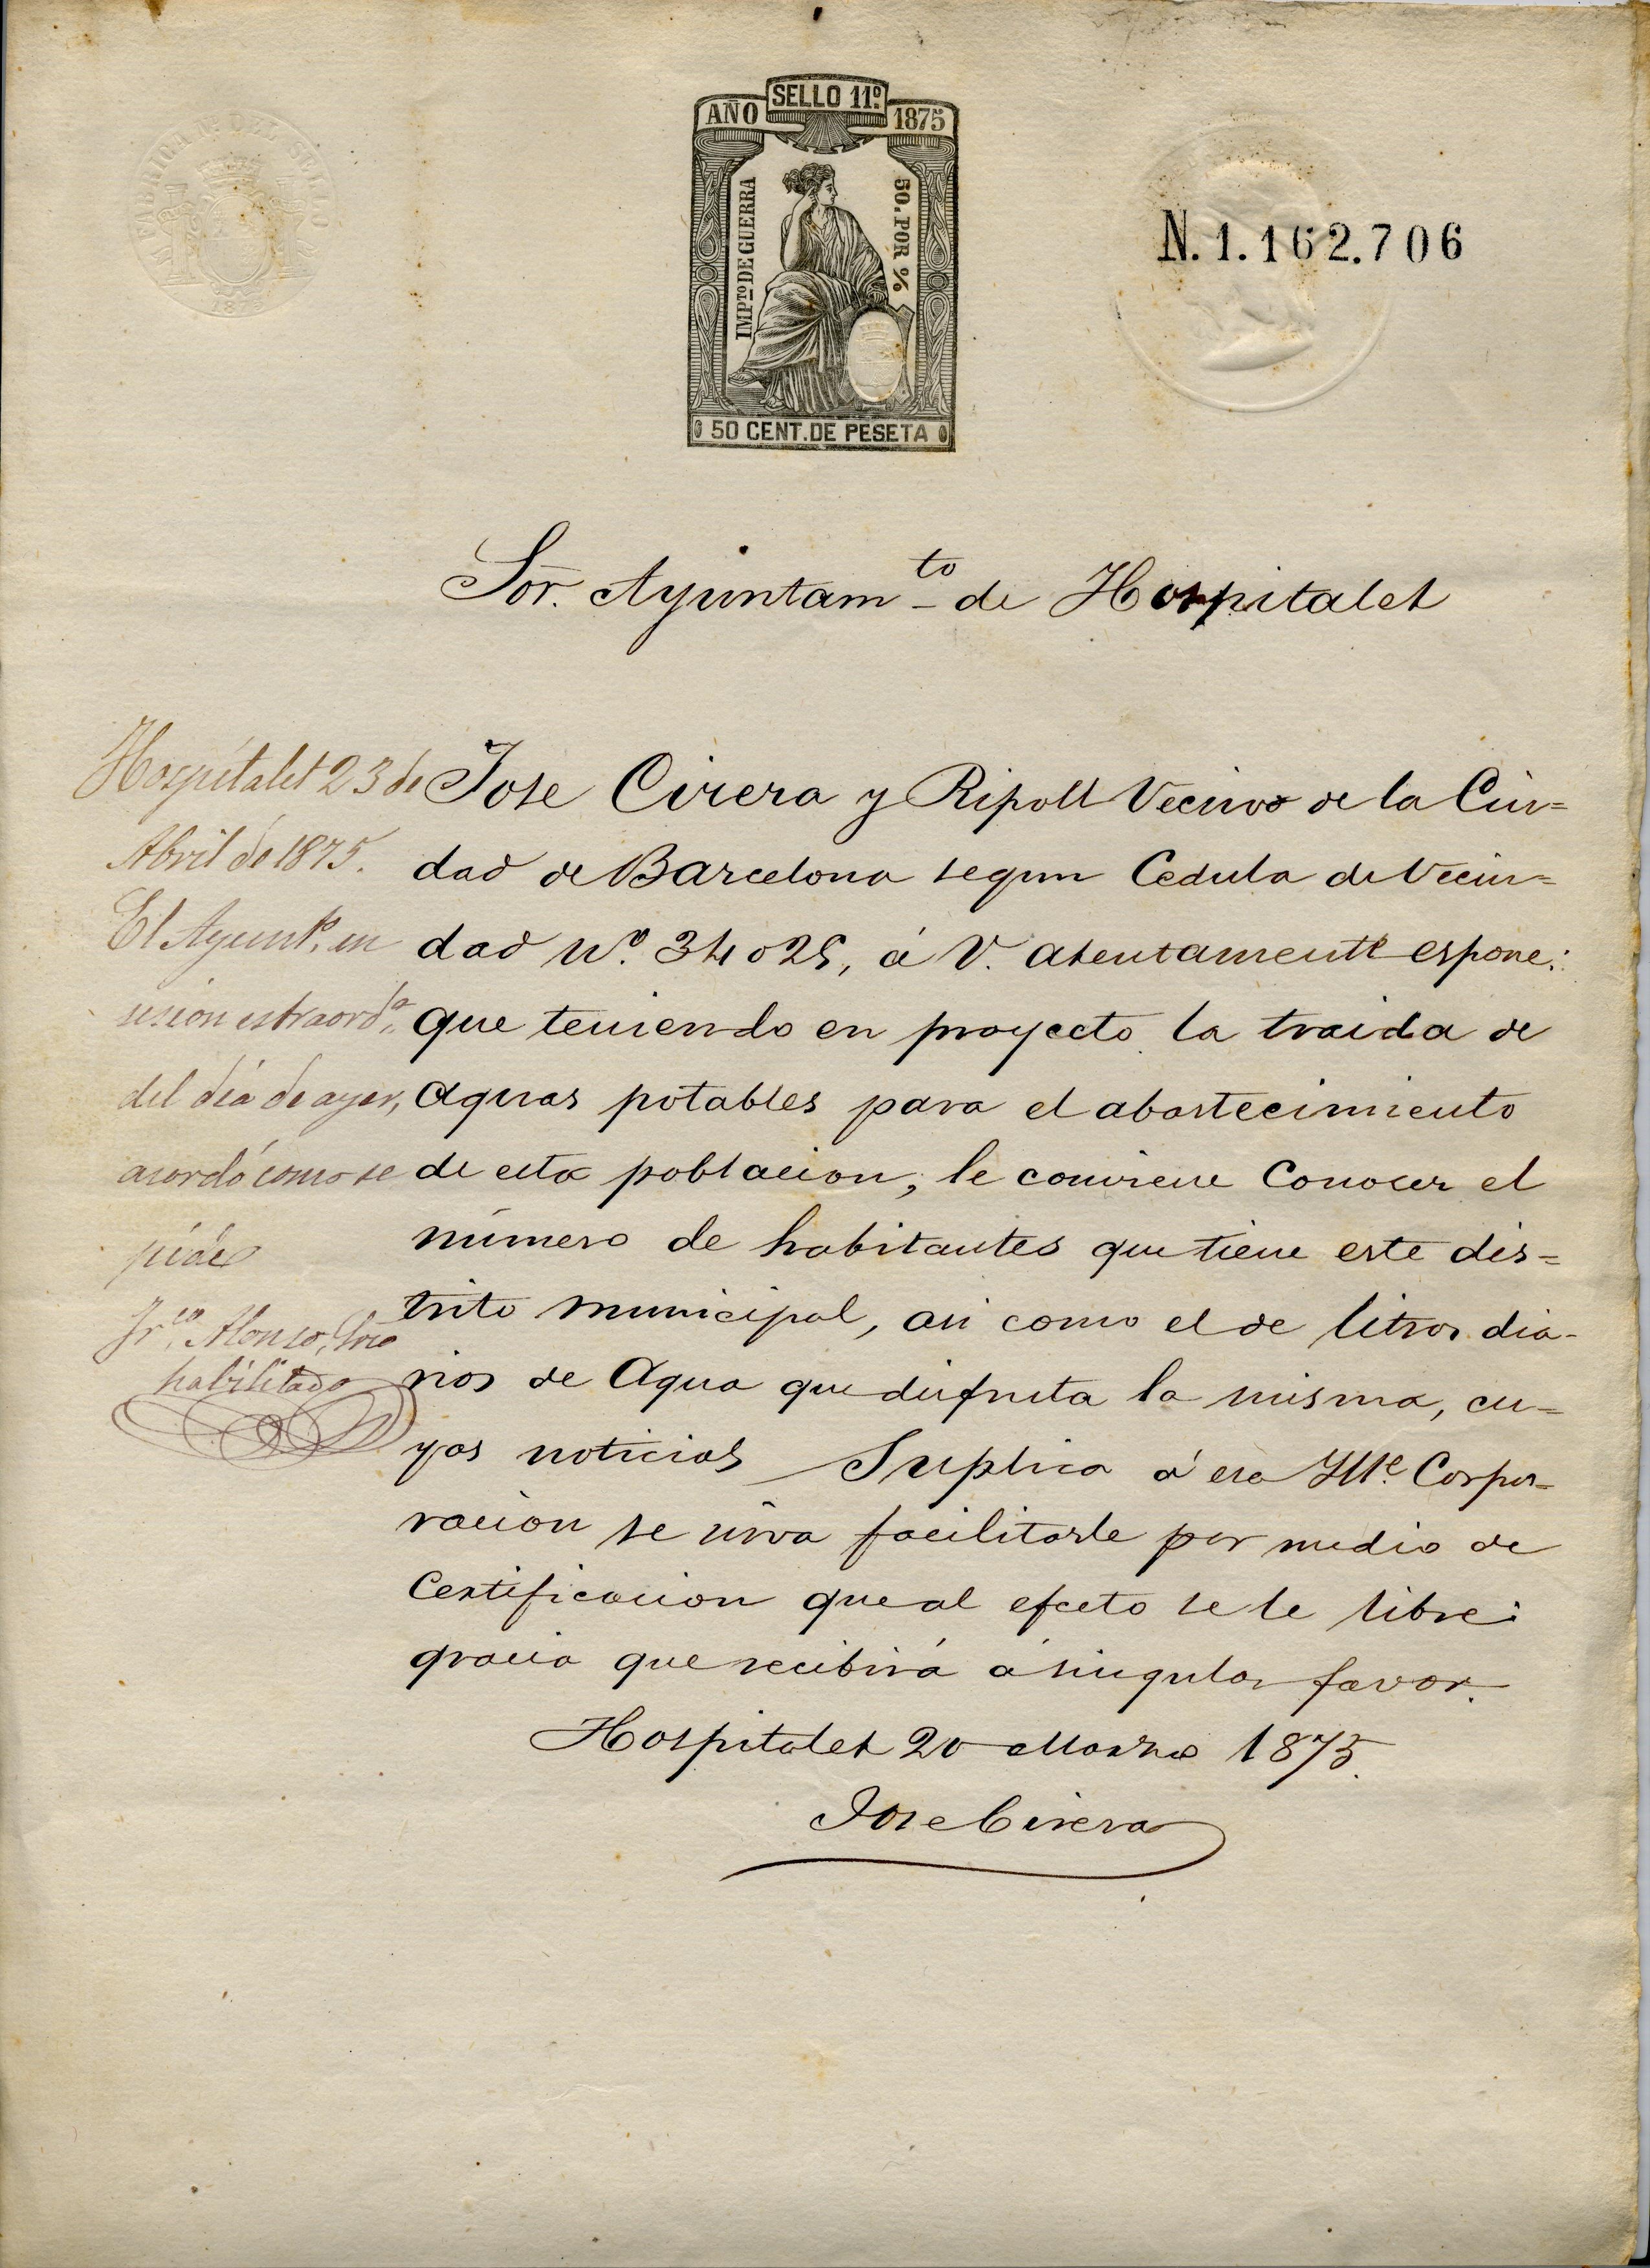 AÑO SELLO 11º 1875
IMPTO DE GUERRA
50. POR %
50 CENT. DE PESETA
N. 1.162.706
Sor. Ayuntamto de Hospitalet
Hospitalet 23 de
Abril de 1875.
El Ayunto. en
sesion estraorda.
del dia de ayer,
acordó como se
pide
Frco. Alonso, Srio
habilitado
Jose Cirera y Ripoll Vecino de la Ciu=
dad de Barcelona segun Cedula de Vecin=
dad Nº. 34025, á V. atentamente espone:
que teniendo en proyecto la traida de
aguas potables para el abastecimiento
de esta poblacion, le conviene Conocer el
número de habitantes que tiene este dis=
trito municipal, asi como el de litros dia-
rios de Agua que disfruta la misma, cu=
yas noticias Suplica á esa Ille. Corpo=
racion se sirva facilitarle por medio de
Certificacion que al efecto se le libre:
gracia que recibirá á singular favor.
Hospitalet 20 Marzo 1875.
Jose Cirera